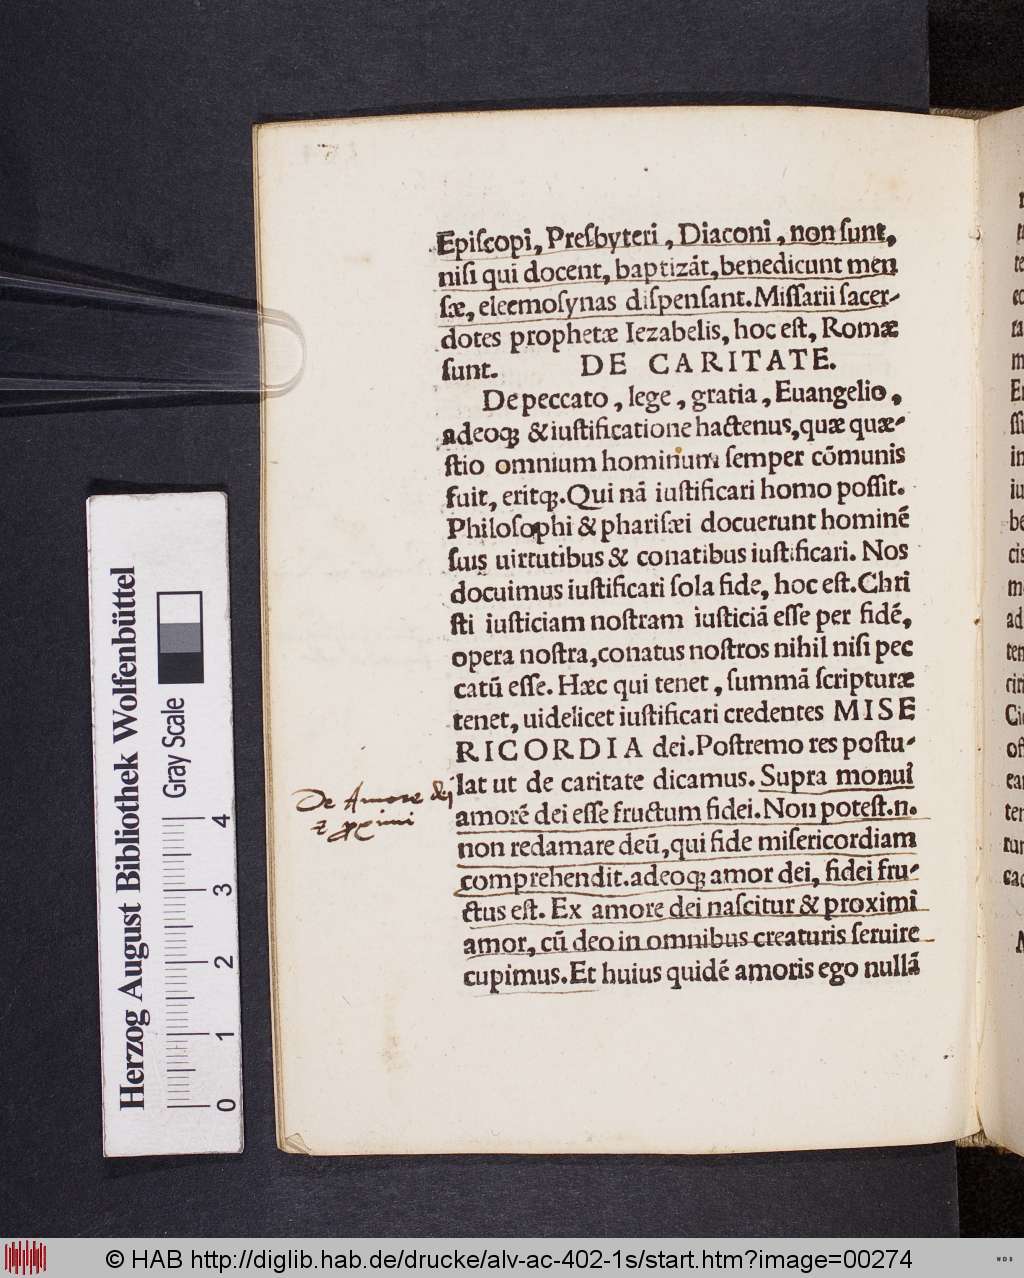 Epiſcopi, Preſbyteri, Diaconi, non ſunt,
niſi qui docent, baptizāt, benedicunt men
ſæ, eleemoſynas diſpenſant. Miſſarii ſacer-
dotes prophetæ Iezabelis, hoc eſt, Romæ
ſunt. DE CARITATE.
De peccato, lege, gratia, Euangelio,
adeoq; & iuſtificatione hactenus, quæ quæ-
ſtio omnium hominum ſemper cōmunis
fuit, eritq;. Qui nā iuſtificari homo poſſit.
Philoſophi & phariſæi docuerunt hominē
ſuis uirtutibus & conatibus iuſtificari. Nos
docuimus iuſtificari ſola fide, hoc eſt. Chri
ſti iuſticiam noſtram iuſticiā eſſe per fidē,
opera noſtra, conatus noſtros nihil niſi pec
catū eſſe. Hæc qui tenet, ſummā ſcripturæ
tenet, uidelicet iuſtificari credentes MISE
RICORDIA dei. Poſtremo res poſtu-
lat ut de caritate dicamus. Supra monui
amorē dei eſſe fructum fidei. Non poteſt.n.
non redamare deū, qui fide miſericordiam
comprehendit. adeoq; amor dei, fidei fru-
ctus eſt. Ex amore dei naſcitur & proximi
amor, cū deo in omnibus creaturis ſeruire
cupimus. Et huius quidē amoris ego nullā
De Amore dei
Herzog August Bibliothek Wolfenbüttel
Gray Scale
0 1 2 3 4
© HAB http://diglib.hab.de/drucke/alv-ac-402-1s/start.htm?image=00274